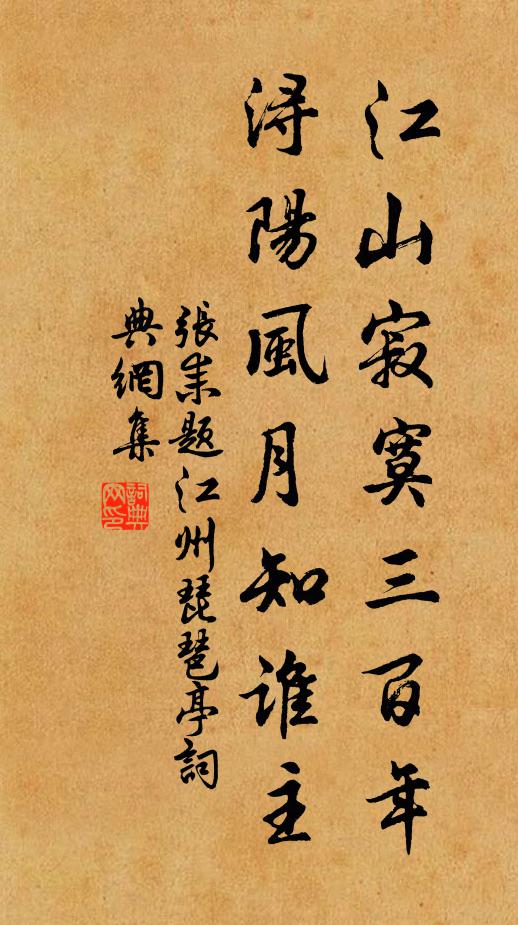 江山寂寞三百年
潯陽風月知誰主
張耒題江州琵琶亭詞
典網集
詞典网印